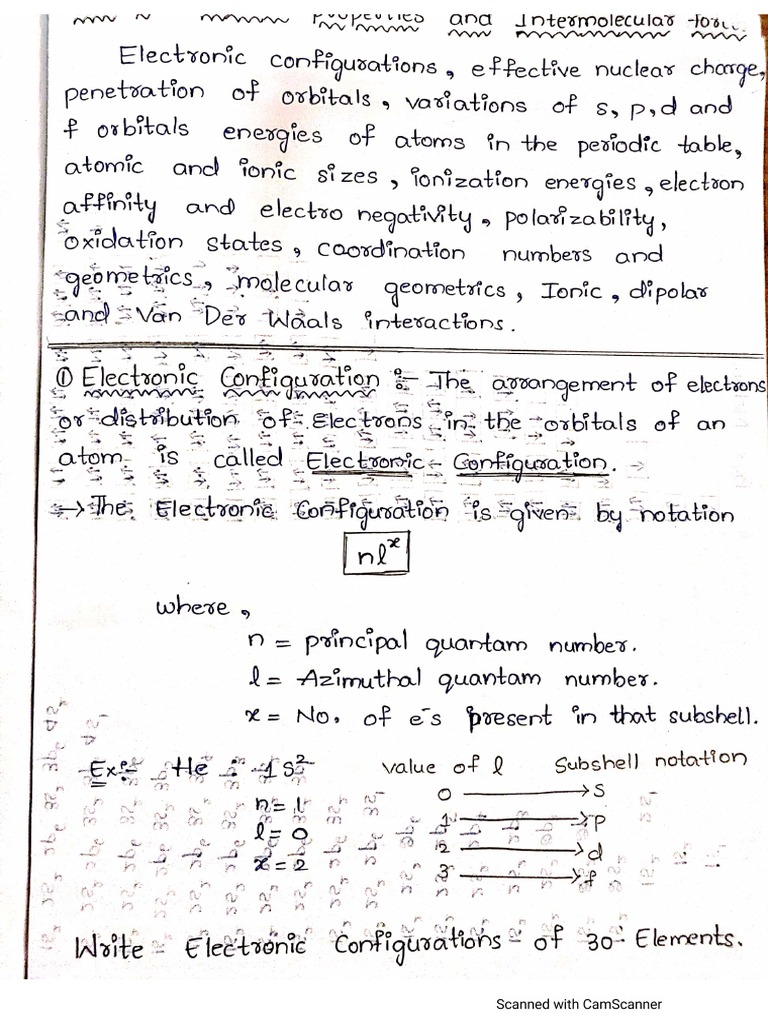 Properties and Intermolecular
Electronic configurations, effective nuclear charge,
penetration of orbitals, variations of s, p, d and
f orbitals energies of atoms in the periodic table,
atomic and ionic sizes, ionization energies, electron
affinity and electro negativity, polarizability,
oxidation states, coordination numbers and
geometrics, molecular geometrics, Ionic, dipolar
and Van Der Waals interactions.
① Electronic Configuration :- The arrangement of electrons
or distribution of Electrons in the orbitals of an
atom is called Electronic Configuration.
→ The Electronic Configuration is given by notation
nlˣ
where,
n = principal quantam number.
l = Azimuthal quantam number.
x = No. of e⁻s present in that subshell.
Ex:- He : 1s² value of l Subshell notation
n = 1 0 → s
l = 0 1 → p
x = 2 2 → d
3 → f
Write Electronic Configurations of 30 Elements.
Scanned with CamScanner